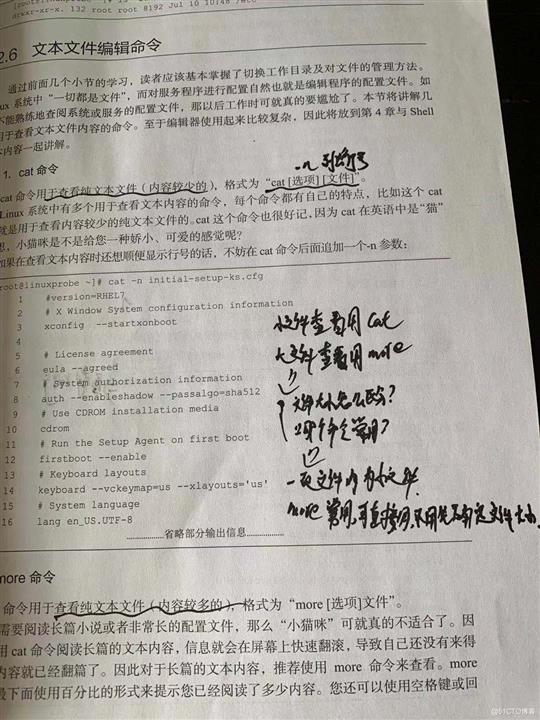 [root@linuxprobe
drwxr-xr-x. 132 root root 8192 Jul 10 10:48 /etc
2.6 文本文件编辑命令
通过前面几个小节的学习，读者应该基本掌握了切换工作目录及对文件的管理方法。
ux 系统中“一切都是文件”，而对服务程序进行配置自然也就是编辑程序的配置文件。如
不能熟练地查阅系统或服务的配置文件，那以后工作时可就真的要尴尬了。本节将讲解几
用于查看文本文件内容的命令。至于编辑器使用起来比较复杂，因此将放到第 4 章与 Shell
本内容一起讲解。
-n 到行号
1. cat 命令
cat 命令用于查看纯文本文件（内容较少的），格式为“cat [选项] [文件]”。
Linux 系统中有多个用于查看文本内容的命令，每个命令都有自己的特点，比如这个 cat
就是用于查看内容较少的纯文本文件的。cat 这个命令也很好记，因为 cat 在英语中是“猫”
想，小猫咪是不是给您一种娇小、可爱的感觉呢？
如果在查看文本内容时还想顺便显示行号的话，不妨在 cat 命令后面追加一个-n 参数：
root@linuxprobe ~]# cat -n initial-setup-ks.cfg
1 #version=RHEL7
2 # X Window System configuration information
3 xconfig --startxonboot
4
5 # License agreement
6 eula --agreed
7 # System authorization information
8 auth --enableshadow --passalgo=sha512
9 # Use CDROM installation media
10 cdrom
11 # Run the Setup Agent on first boot
12 firstboot --enable
13 # Keyboard layouts
14 keyboard --vckeymap=us --xlayouts='us'
15 # System language
16 lang en_US.UTF-8
小文件查看用 cat
大文件查看用 more
文件大小怎么区分？
哪个命令常用？
一般文件为小文件
more 常用，可直接用，不用先确定文件大小.
………………省略部分输出信息………………
more 命令
命令用于查看纯文本文件（内容较多的），格式为“more [选项]文件”。
需要阅读长篇小说或者非常长的配置文件，那么“小猫咪”可就真的不适合了。因
用 cat 命令阅读长篇的文本内容，信息就会在屏幕上快速翻滚，导致自己还没有来得
内容就已经翻篇了。因此对于长篇的文本内容，推荐使用 more 命令来查看。more
最下面使用百分比的形式来提示您已经阅读了多少内容。您还可以使用空格键或回
@51CTO博客